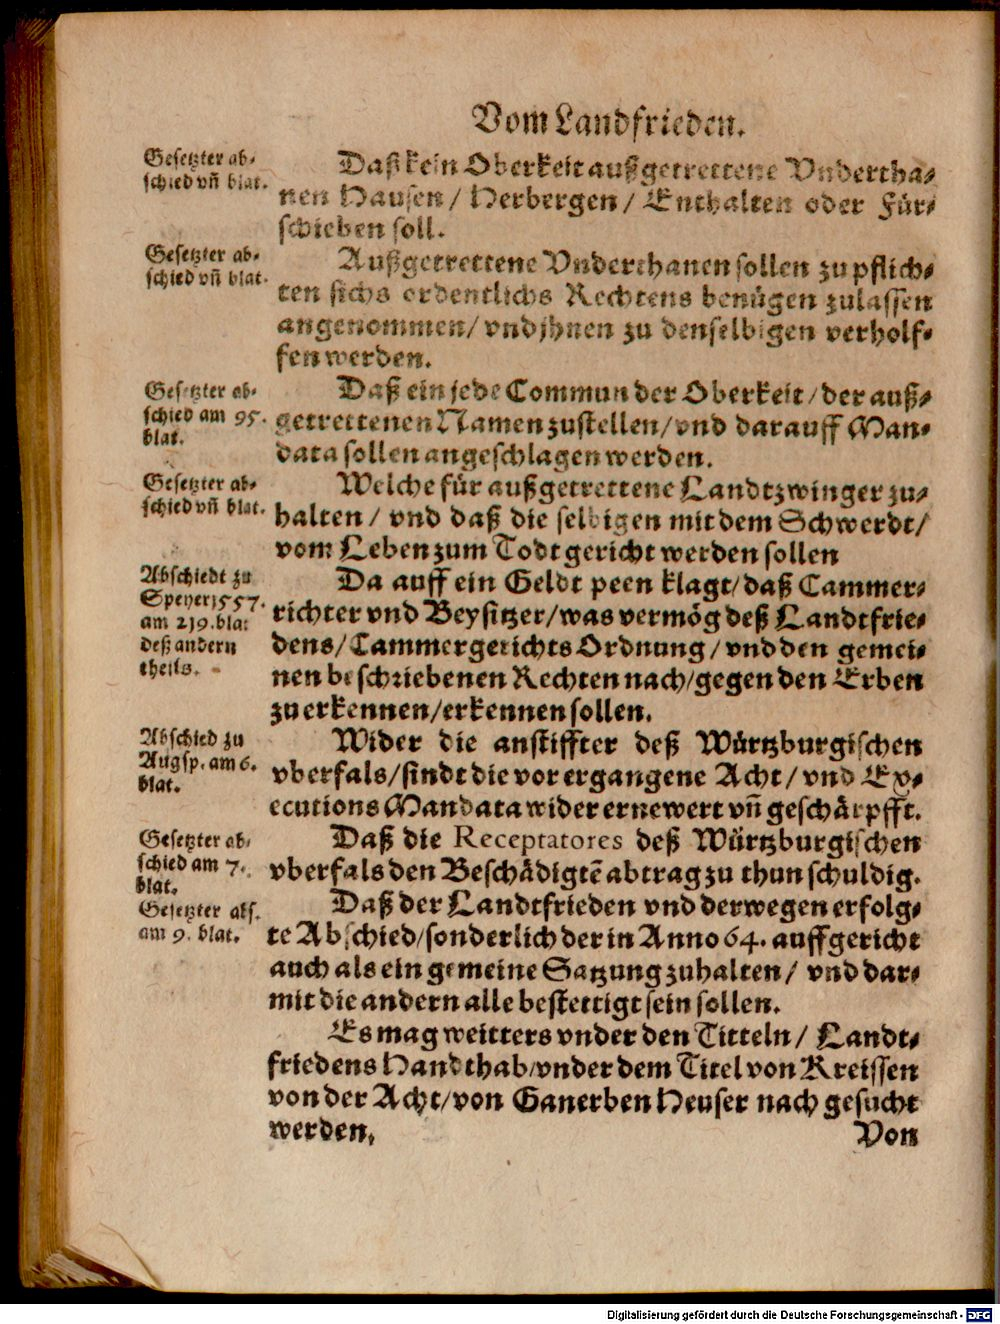 Vom Landfrieden.
Gesetzter ab-
schied vñ blat.
Daß kein Oberkeit außgetrettene Vndertha-
nen Hausen/ Herbergen/ Enthalten oder Für-
schieben soll.
Gesetzter ab-
schied vñ blat.
Außgetrettene Vnderthanen sollen zu pflich-
ten sichs ordentlichs Rechtens benügen zulassen
angenommen/ vnd jhnen zu denselbigen verholf-
fen werden.
Gesetzter ab-
schied am 95.
blat.
Daß ein jede Commun der Oberkeit/ der auß-
getrettenen Namen zustellen/ vnd darauff Man-
data sollen angeschlagen werden.
Gesetzter ab-
schied vñ blat.
Welche für außgetrettene Landtzwinger zu-
halten/ vnd daß die selbigen mit dem Schwerdt/
vom Leben zum Todt gericht werden sollen
Abschiedt zu
Speyer 1557.
am 219. blat
deß andern
theils.
Da auff ein Geldt peen klagt/ daß Cammer-
richter vnd Beysitzer/ was vermög deß Landtfrie-
dens/ Cammergerichts Ordnung/ vnd den gemei-
nen beschriebenen Rechten nach/ gegen den Erben
zu erkennen/ erkennen sollen.
Abschied zu
Augsp. am 6.
blat.
Wider die anstiffter deß Würtzburgischen
vberfals/ sindt die vor ergangene Acht/ vnd Ex-
ecutions Mandata wider ernewert vñ geschärpfft.
Gesetzter ab-
schied am 7.
blat.
Daß die Receptatores deß Würtzburgischen
vberfals den Beschädigtē abtrag zu thun schuldig.
Gesetzter abs.
am 9. blat.
Daß der Landtfrieden vnd derwegen erfolg-
te Abschied/ sonderlich der in Anno 64. auffgericht
auch als ein gemeine Satzung zuhalten/ vnd dar-
mit die andern alle bestettigt sein sollen.
Es mag weitters vnder den Titteln/ Landt-
friedens Handthab/ vnder dem Titel von Kreissen
von der Acht/ von Ganerben Heuser nach gesucht
werden.
Von
Digitalisierung gefördert durch die Deutsche Forschungsgemeinschaft - DFG